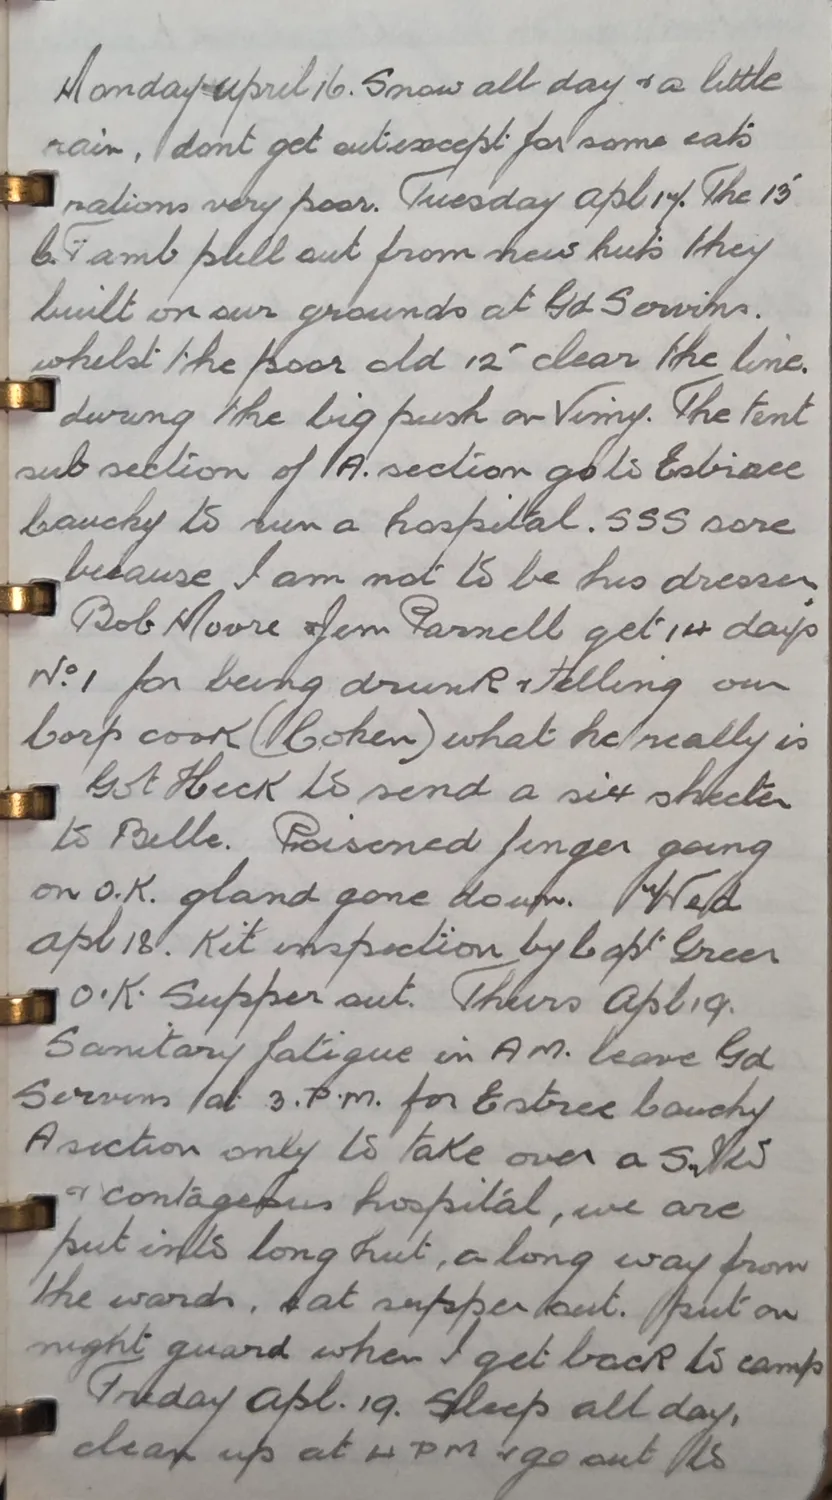 Monday april 16. Snow all day & a little
rain, dont get out except for some eats
rations very poor. Tuesday apl 17. The 13
C.F amb pull out from new huts they
built on our grounds at Gd Servins.
whilst the poor old 12 clear the line.
during the big push on Vimy. The tent
sub section of A. section go to Estraee
Cauchy to run a hospital. SSS sore
because I am not to be his dresser
Bob Moore & Jem Parnell get 14 days
No. 1 for being drunk & telling our
Corp cook (Cohen) what he really is
Got Heck to send a six sheeter
to Belle. Poisoned finger going
on O.K. gland gone down. Wed
apl 18. Kit inspection by Capt Greer
O.K. Supper out. Thurs Apl 19.
Sanitary fatigue in A M. leave Gd
Servins at 3. P.M. for Estree Cauchy
A section only to take over a
& contageous hospital, we are
put into long hut, a long way from
the wards, eat supper out. put on
night guard when I get back to camp
Friday Apl. 19. Sleep all day,
clean up at 4 P M & go out to